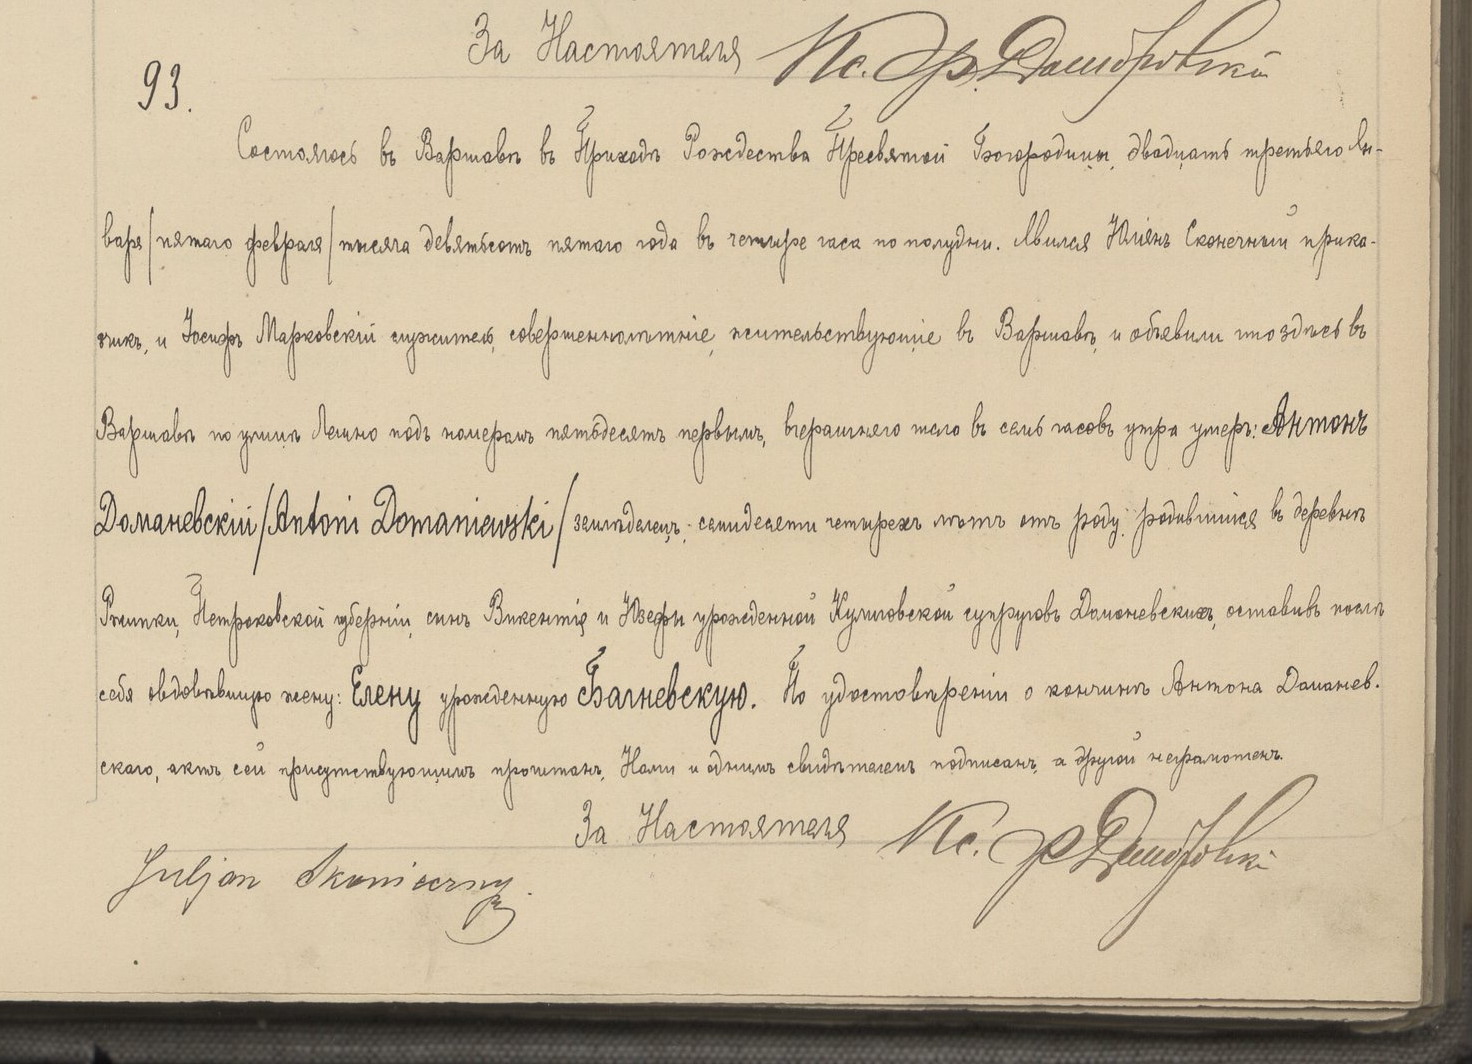 За Настоятеля Кс. Фр. Домбровскій
93.
Состоялось въ Варшавѣ въ Приходѣ Рождества Пресвятой Богородицы, двадцать третьяго Ян-
варя/пятаго февраля/тысяча девятьсотъ пятаго года въ четыре часа по полудни. Явился Юліянъ Сконечный прика-
зчикъ, и Іосифъ Марковскій служитель, совершеннолѣтніе, жительствующіе въ Варшавѣ, и объявили что здѣсь въ
Варшавѣ по улицѣ Лешно подъ номеромъ пятьдесятъ первымъ, вчерашняго числа въ семь часовъ утра умеръ: Антонъ
Доманевскій/Antoni Domaniewski/земледелецъ, семидесяти четырехъ лѣтъ отъ роду, родившійся въ деревнѣ
Петроковской губерніи, сынъ Викентія и Юзефы урожденной супруговъ Доманевскихъ, оставивъ послѣ
себя овдовѣвшую жену: Елену урожденную Багневскую. По удостовѣреніи о кончинѣ Антона Доманев-
скаго, актъ сей присутствующимъ прочитанъ, Нами и однимъ свидѣтелемъ подписанъ, а другой неграмотенъ.
За Настоятеля Кс. Фр. Домбровскі
Juljan Skonieczny